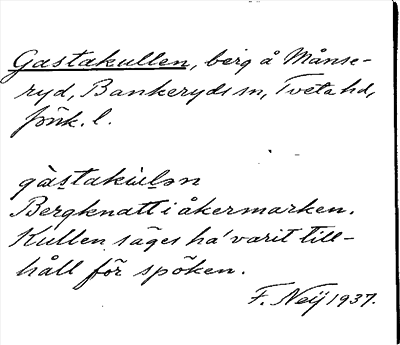 Gastakullen, berg å Månse-
ryd, Bankeryds sn, Tveta hd,
Jönk. l.
gàstakùlən
Bergknatt i åkermarken.
Kullen säges ha' varit till-
håll för spöken.
F. Neij 1937.